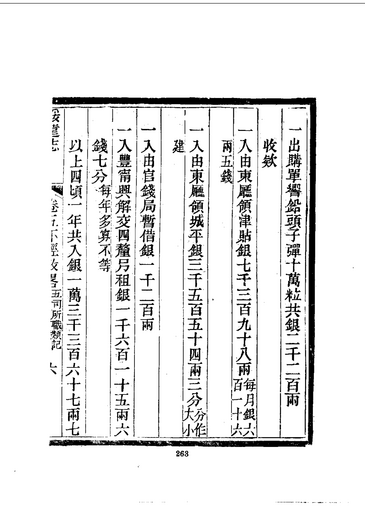 一出購單響鉛頭子彈十萬粒共銀二千二百兩
收欵
一入由東廳領津貼銀七千三百九十八兩每月銀六百一十六
兩五錢
一入由東廳領城平銀三千五百五十四兩三分分作大小
建
一入由官錢局暫借銀一千二百兩
一入豐甯興解交四釐弓租銀一千六百一十五兩六
錢七分每年多寡不等
以上四項一年共入銀一萬三千三百六十七兩七
志 卷五下經政畧五司所職類記
263